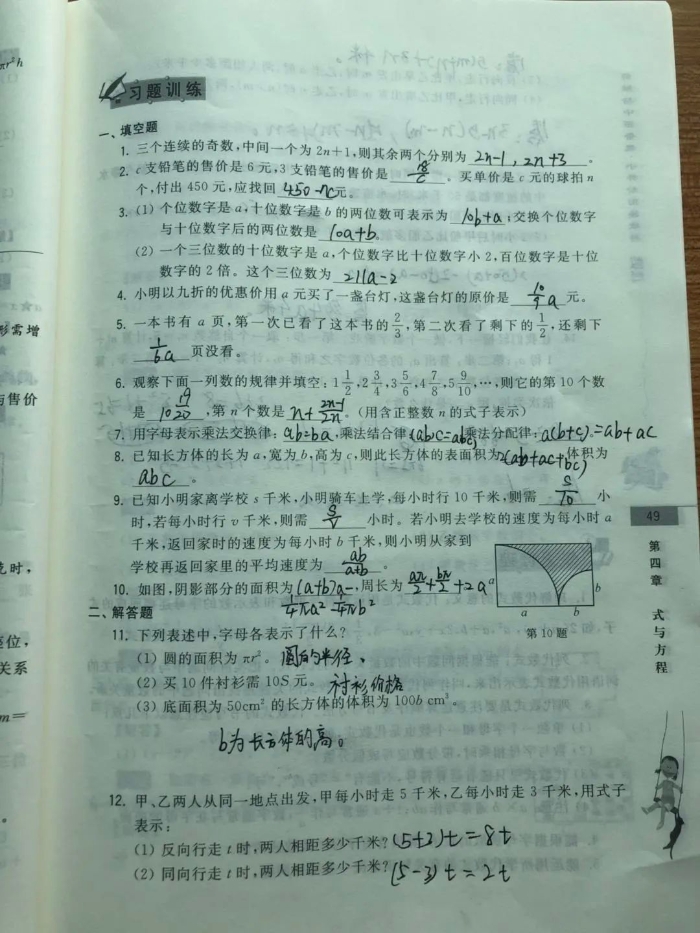 πr²h
习题训练
一、填空题
1. 三个连续的奇数,中间一个为 2n+1,则其余两个分别为 2n-1, 2n+3 。
2. c 支铅笔的售价是 6 元,3 支铅笔的售价是 18/c 。买单价是 c 元的球拍 n
个,付出 450 元,应找回 450-nc 元。
3. (1) 个位数字是 a,十位数字是 b 的两位数可表示为 10b+a ;交换个位数字
与十位数字后的两位数是 10a+b
(2) 一个三位数的十位数字是 a,个位数字比十位数字小 2,百位数字是十位
数字的 2 倍。这个三位数为 211a-2
4. 小明以九折的优惠价用 a 元买了一盏台灯,这盏台灯的原价是 10/9 a 元。
5. 一本书有 a 页,第一次已看了这本书的 2/3,第二次看了剩下的 1/2,还剩下
1/6 a 页没看。
6. 观察下面一列数的规律并填空:1 1/2,2 3/4,3 5/6,4 7/8,5 9/10,…,则它的第 10 个数
是 10 19/20 ,第 n 个数是 n+ 2n-1/2n 。(用含正整数 n 的式子表示)
7. 用字母表示乘法交换律: ab=ba ,乘法结合律 (ab)c=a(bc) 乘法分配律: a(b+c)=ab+ac
8. 已知长方体的长为 a,宽为 b,高为 c,则此长方体的表面积为 2(ab+ac+bc) 体积为
abc 。
9. 已知小明家离学校 s 千米,小明骑车上学,每小时行 10 千米,则需 S/10 小
时,若每小时行 v 千米,则需 S/v 小时。若小明去学校的速度为每小时 a
千米,返回家时的速度为每小时 b 千米,则小明从家到
学校再返回家里的平均速度为 ab/a+b 。
10. 如图,阴影部分的面积为 (a+b)a- ,周长为 aπ/2 + bπ/2 +2a
1/4 πa² - 1/4 πb²
a
b
a
b
第 10 题
二、解答题
11. 下列表述中,字母各表示了什么?
(1) 圆的面积为 πr²。 圆的半径、
(2) 买 10 件衬衫需 10S 元。 衬衫价格
(3) 底面积为 50cm² 的长方体的体积为 100b cm³。
b为长方体的高。
12. 甲、乙两人从同一地点出发,甲每小时走 5 千米,乙每小时走 3 千米,用式子
表示:
(1) 反向行走 t 时,两人相距多少千米? (5+3)t=8t
(2) 同向行走 t 时,两人相距多少千米? (5-3)t=2t
49
第四章 式与方程
形需增
与售价
位,
关系
m=